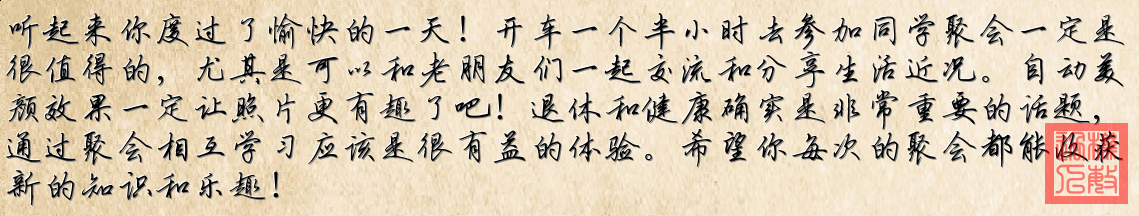 听起来你度过了愉快的一天！开车一个半小时去参加同学聚会一定是
很值得的，尤其是可以和老朋友们一起交流和分享生活近况。自动美
颜效果一定让照片更有趣了吧！退休和健康确实是非常重要的话题，
通过聚会相互学习应该是很有益的体验。希望你每次的聚会都能收获
新的知识和乐趣！